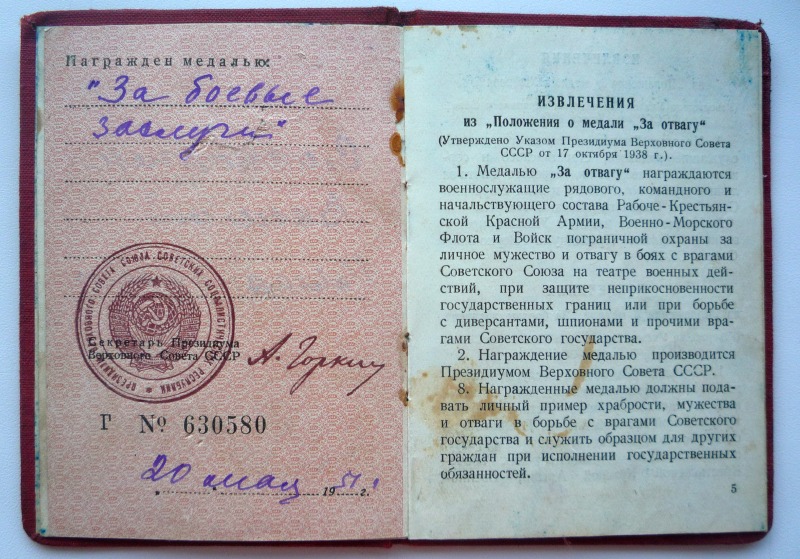 Награжден медалью:
"За боевые
заслуги"
ПРЕЗИДИУМ ВЕРХОВНОГО СОВЕТА СОЮЗА СОВЕТСКИХ СОЦИАЛИСТИЧЕСКИХ РЕСПУБЛИК
Секретарь Президиума
Верховного Совета СССР А. Горкин
Г № 630580
20 мая 1951 г.
ИЗВЛЕЧЕНИЯ
из „Положения о медали „За отвагу“
(Утверждено Указом Президиума Верховного Совета
СССР от 17 октября 1938 г.).
1. Медалью „За отвагу“ награждаются
военнослужащие рядового, командного и
начальствующего состава Рабоче-Крестьян-
ской Красной Армии, Военно-Морского
Флота и Войск пограничной охраны за
личное мужество и отвагу в боях с врагами
Советского Союза на театре военных дей-
ствий, при защите неприкосновенности
государственных границ или при борьбе
с диверсантами, шпионами и прочими вра-
гами Советского государства.
2. Награждение медалью производится
Президиумом Верховного Совета СССР.
8. Награжденные медалью должны пода-
вать личный пример храбрости, мужества
и отваги в борьбе с врагами Советского
государства и служить образцом для других
граждан при исполнении государственных
обязанностей.
5